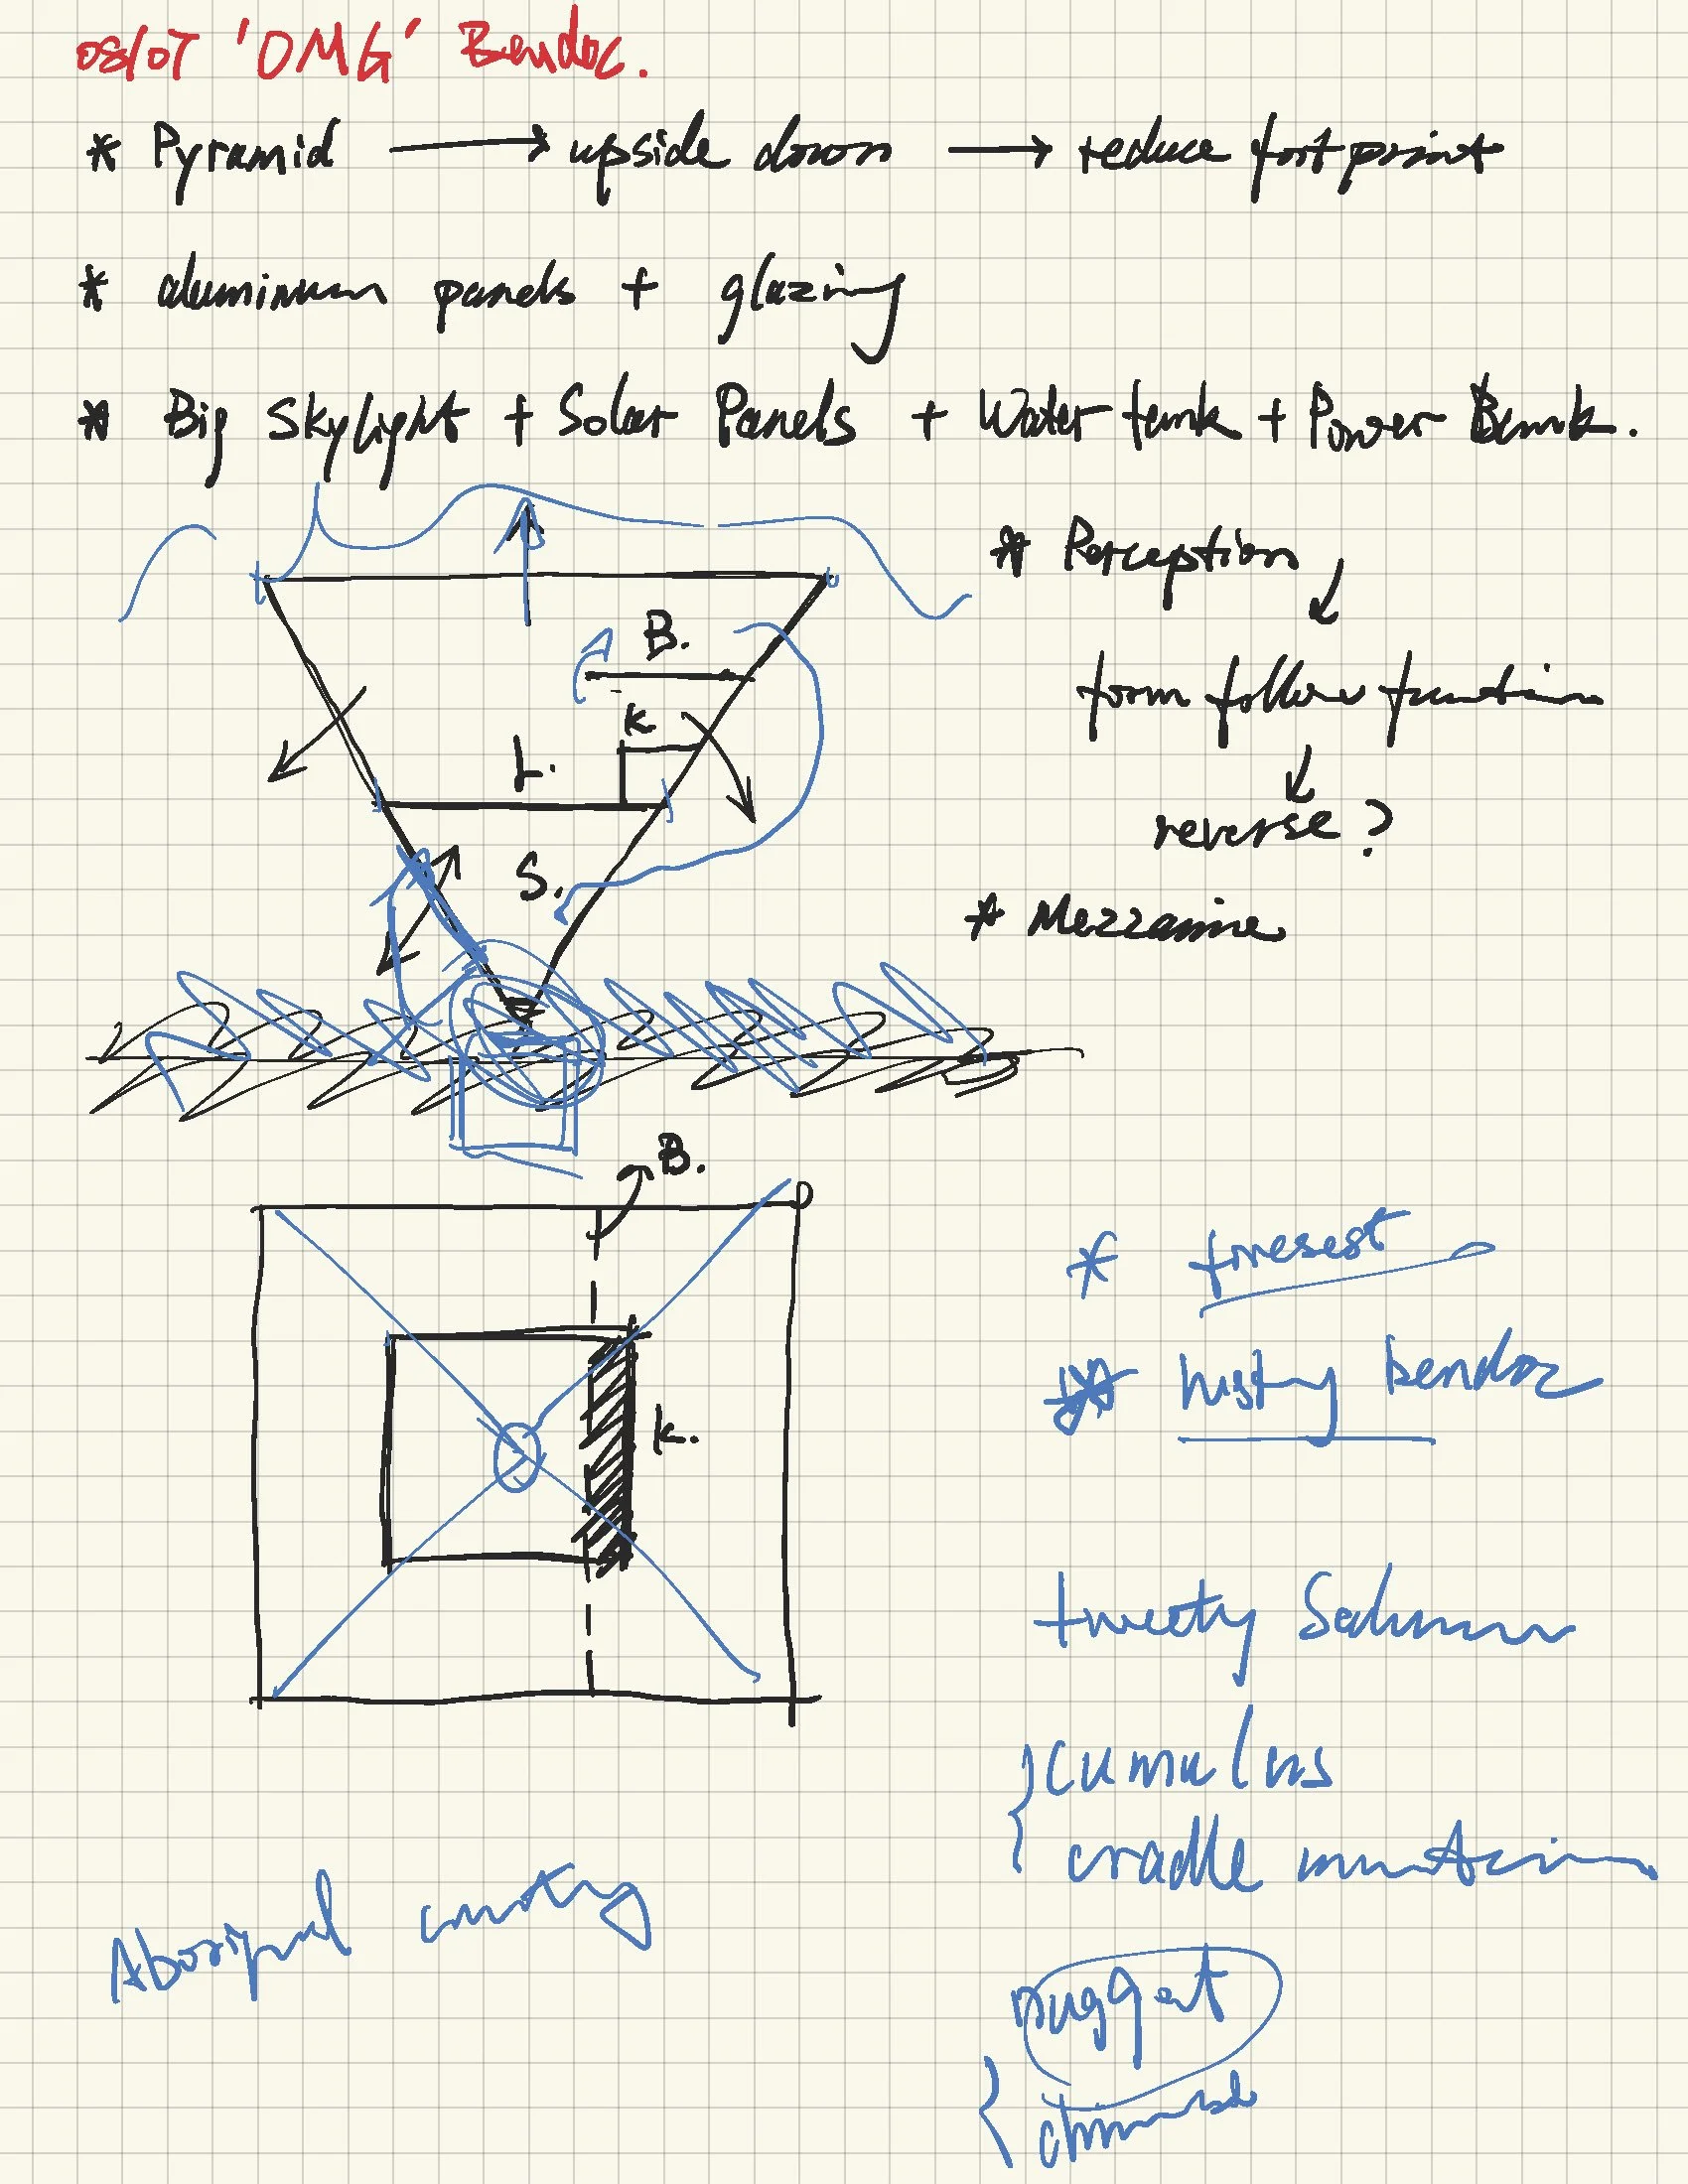 08/07 'OMG' Bendoc.
* Pyramid → upside down → reduce foot print
* aluminum panels + glazing
* Big Skylight + Solar Panels + Water tank + Power Bank.
* Perception
B.
form follow function
K.
L.
reverse?
S.
* Mezzanine
B.
* foresest
* histry bendoc
K.
tweety
cumulus
cradle mountain
Aboriginal
nugget